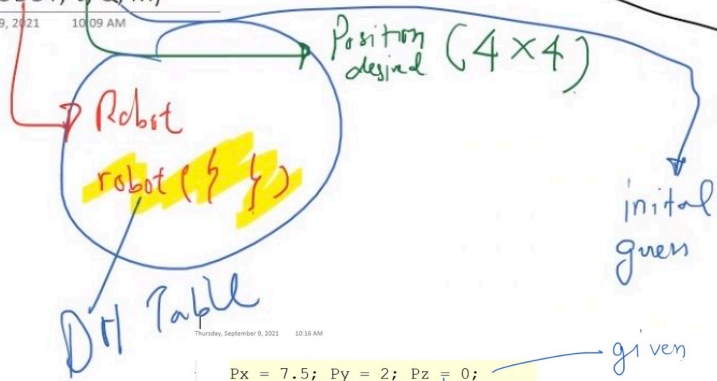 9, 2021 10:09 AM
Position (4×4)
desired
Robot
robot ( { } )
inital
guess
DH Table
Thursday, September 9, 2021 10:16 AM
given
Px = 7.5; Py = 2; Pz = 0;